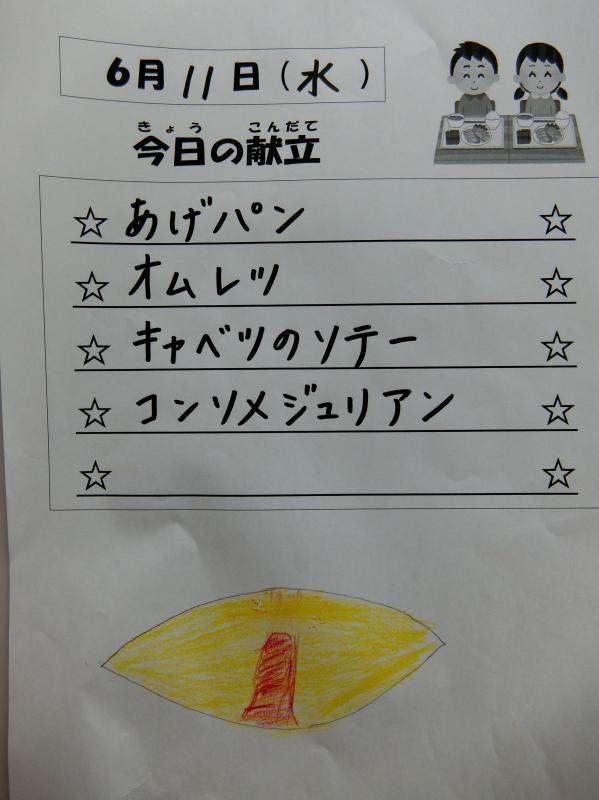 6月11日(水)
きょう こんだて
今日の献立
☆ あげパン ☆
☆ オムレツ ☆
☆ キャベツのソテー ☆
☆ コンソメジュリアン ☆
☆ ☆